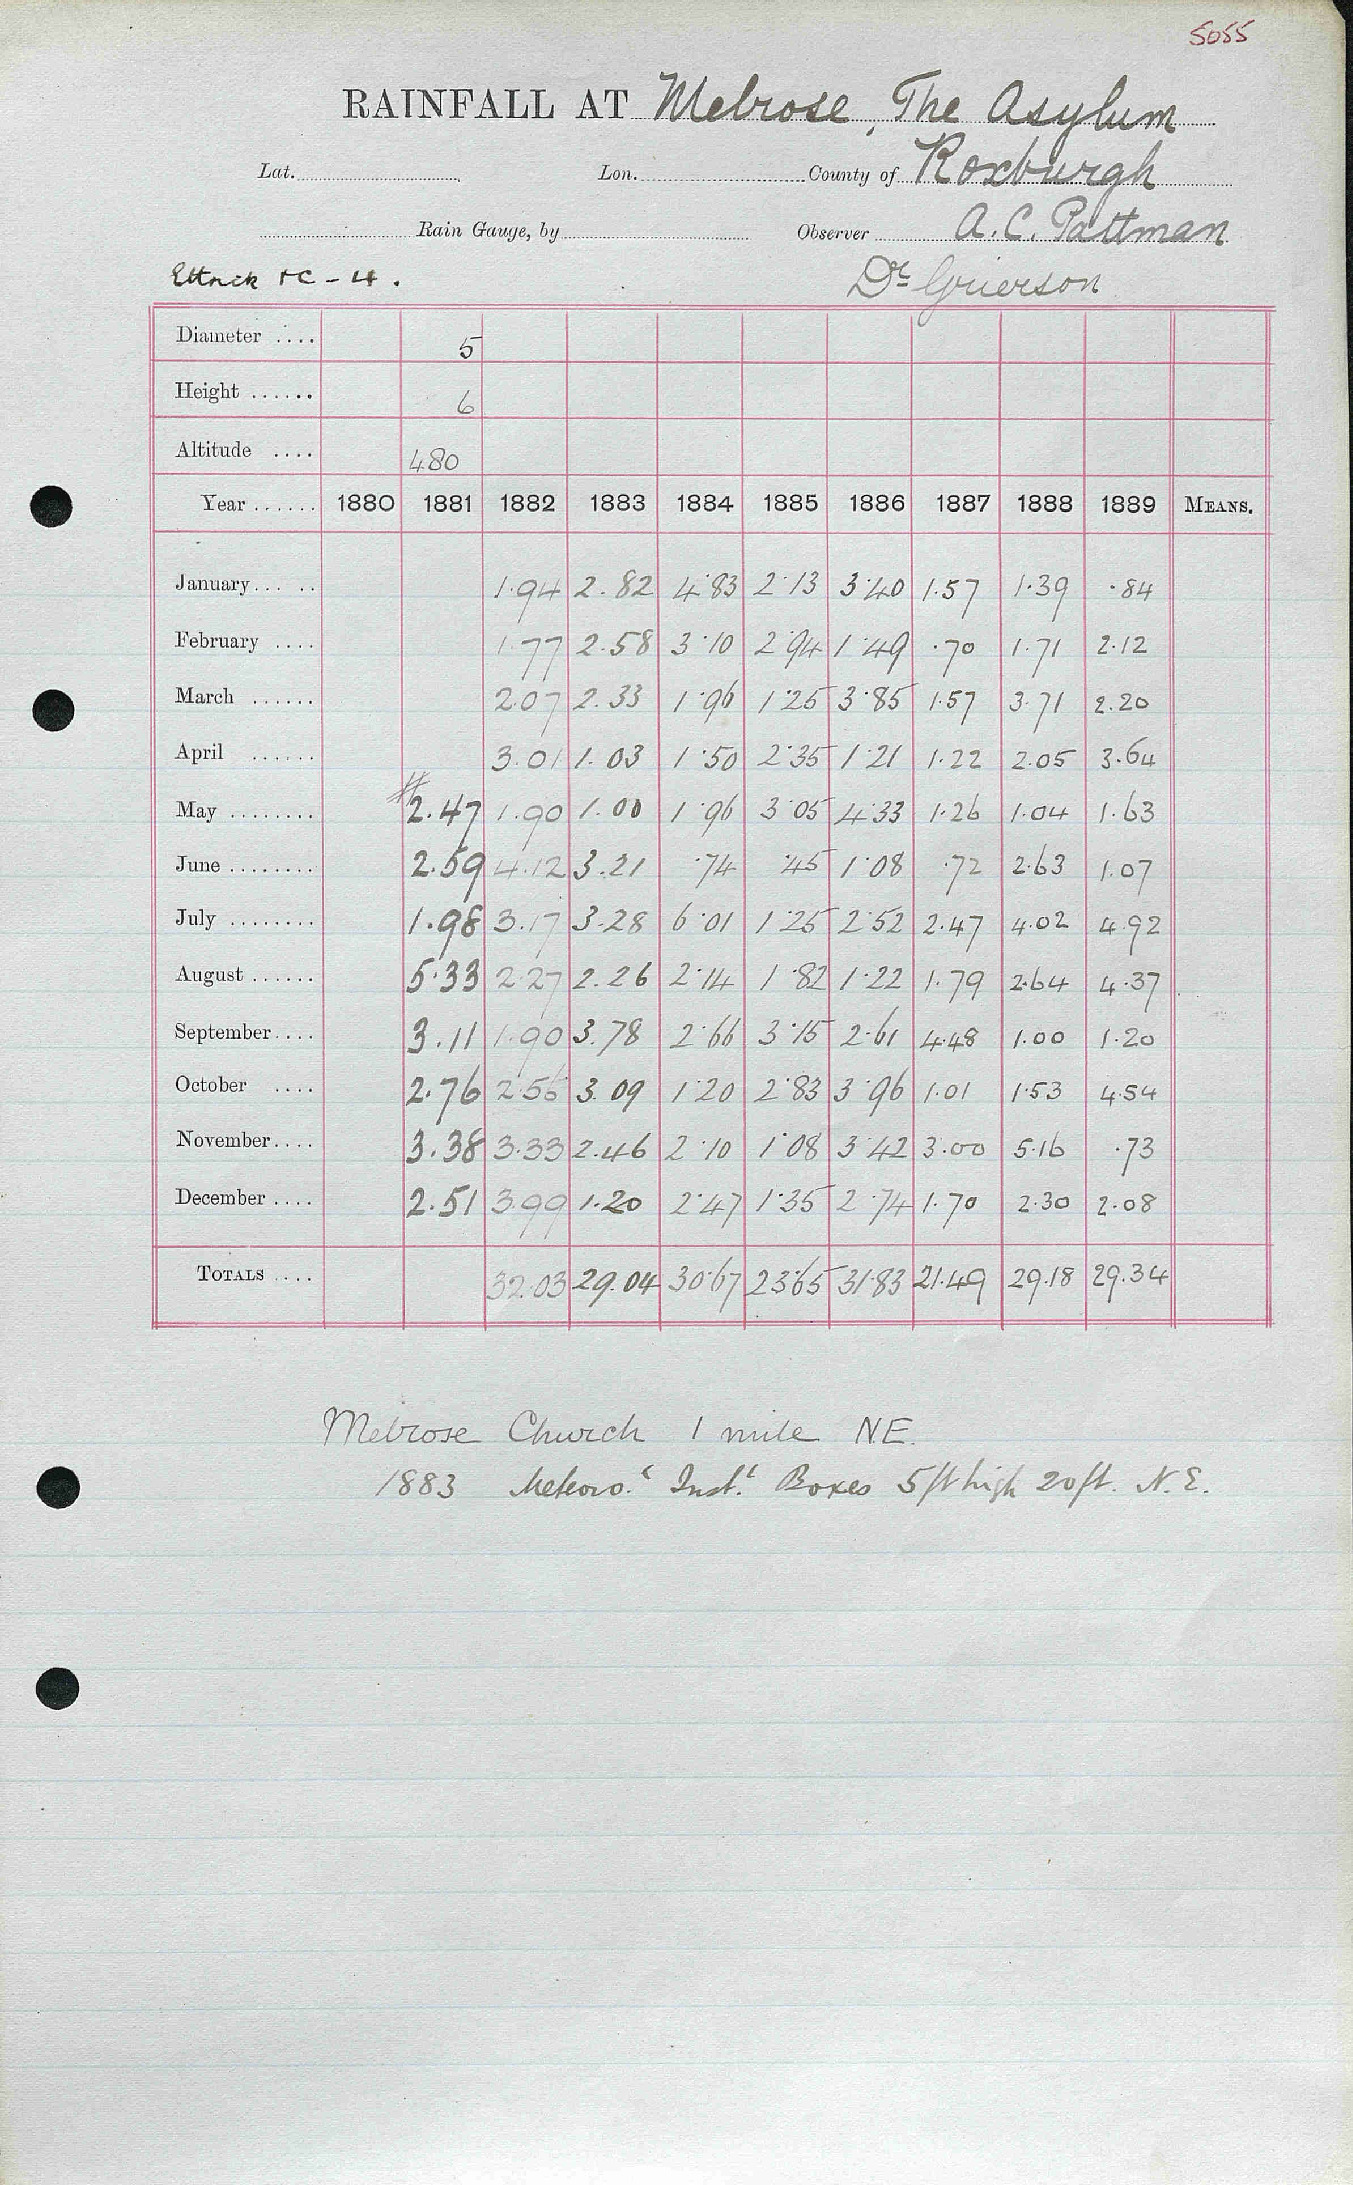 5055
RAINFALL AT Melrose, The Asylum
Lat. Lon. County of Roxburgh
Rain Gauge, by Observer A. C. Pattman
Ettrick Dr Grierson
Diameter .... 5
Height ...... 6
Altitude .... 480
Year ...... 1880 1881 1882 1883 1884 1885 1886 1887 1888 1889 MEANS.
January... .. 1.94 2.82 4.83 2.13 3.40 1.57 1.39 .84
February .... 1.77 2.58 3.10 2.94 1.49 .70 1.71 2.12
March ...... 2.07 2.33 1.96 1.25 3.85 1.57 3.71 2.20
April ...... 3.01 1.03 1.50 2.35 1.21 1.22 2.05 3.64
May ........ 2.47 1.90 1.00 1.96 3.05 4.33 1.26 1.04 1.63
June ........ 2.59 4.12 3.21 .74 .45 1.08 .72 2.63 1.07
July ........ 1.98 3.17 3.28 6.01 1.25 2.52 2.47 4.02 4.92
August ...... 5.33 2.27 2.26 2.14 1.82 1.22 1.79 2.64 4.37
September.... 3.11 1.90 3.78 2.66 3.15 2.61 4.48 1.00 1.20
October .... 2.76 2.56 3.09 1.20 2.83 3.96 1.01 1.53 4.54
November.... 3.38 3.33 2.46 2.10 1.08 3.42 3.00 5.16 .73
December .... 2.51 3.99 1.20 2.47 1.35 2.74 1.70 2.30 2.08
TOTALS .... 32.03 29.04 30.67 23.65 31.83 21.49 29.18 29.34
Melrose Church 1 mile N.E.
1883 Meteoro.l Inst. Boxes 5ft high 20ft. N.E.